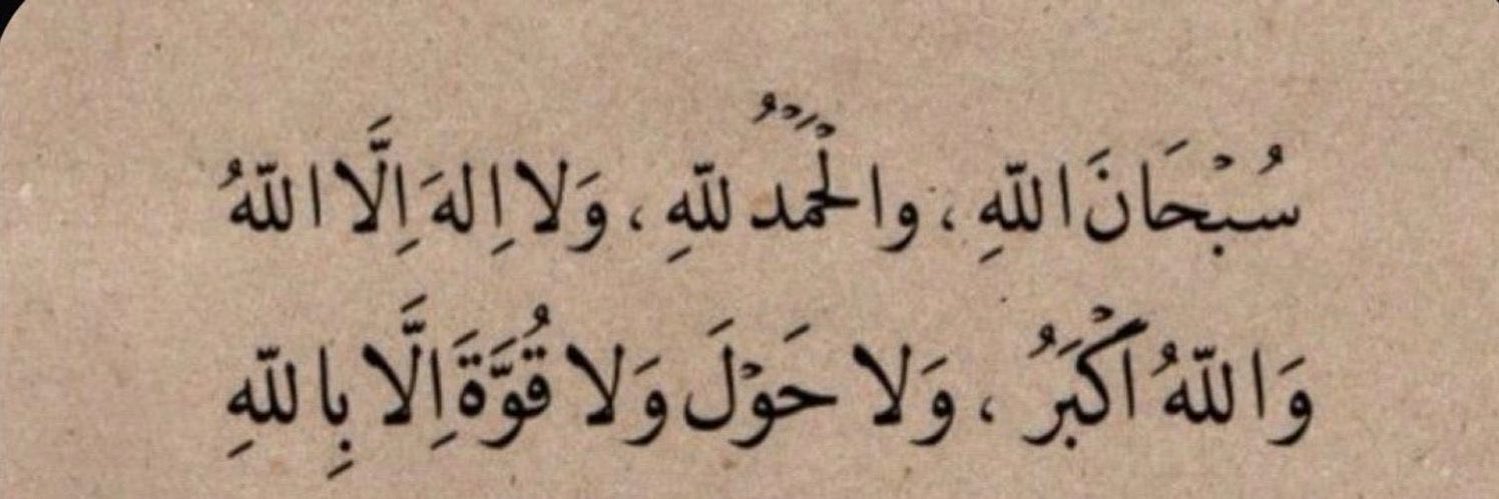 سُبْحَانَ اللّهِ ، والْحَمْدُ للّهِ ، وَلا اِلهَ اِلَّا اللّهُ
وَاللّهُ اَكْبَرُ ، وَلا حَوْلَ وَلا قُوَّةَ اِلَّا بِاللّهِ